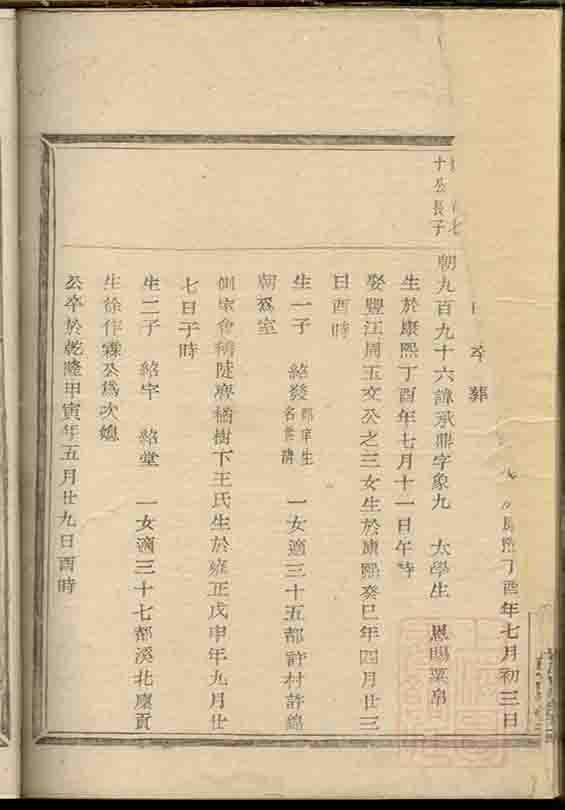 熙丁酉年七月初三日
卒葬
十公長子
朝九百九十六諱承鼎字象九 太學生 恩賜粟帛
生於康熙丁酉年七月十一日午時
娶豐江周玉文公之三女生於康熙癸巳年四月廿三
日酉時
生一子 紹發 郡庠生 名世清 一女適三十五都許村許錦
朝為室
側室會稽陡亹橘樹下王氏生於雍正戊申年九月廿
七日子時
生二子 紹宇 紹堂 一女適三十七都溪北廩貢
生徐作霖公為次媳
公卒於乾隆甲寅年五月廿九日酉時